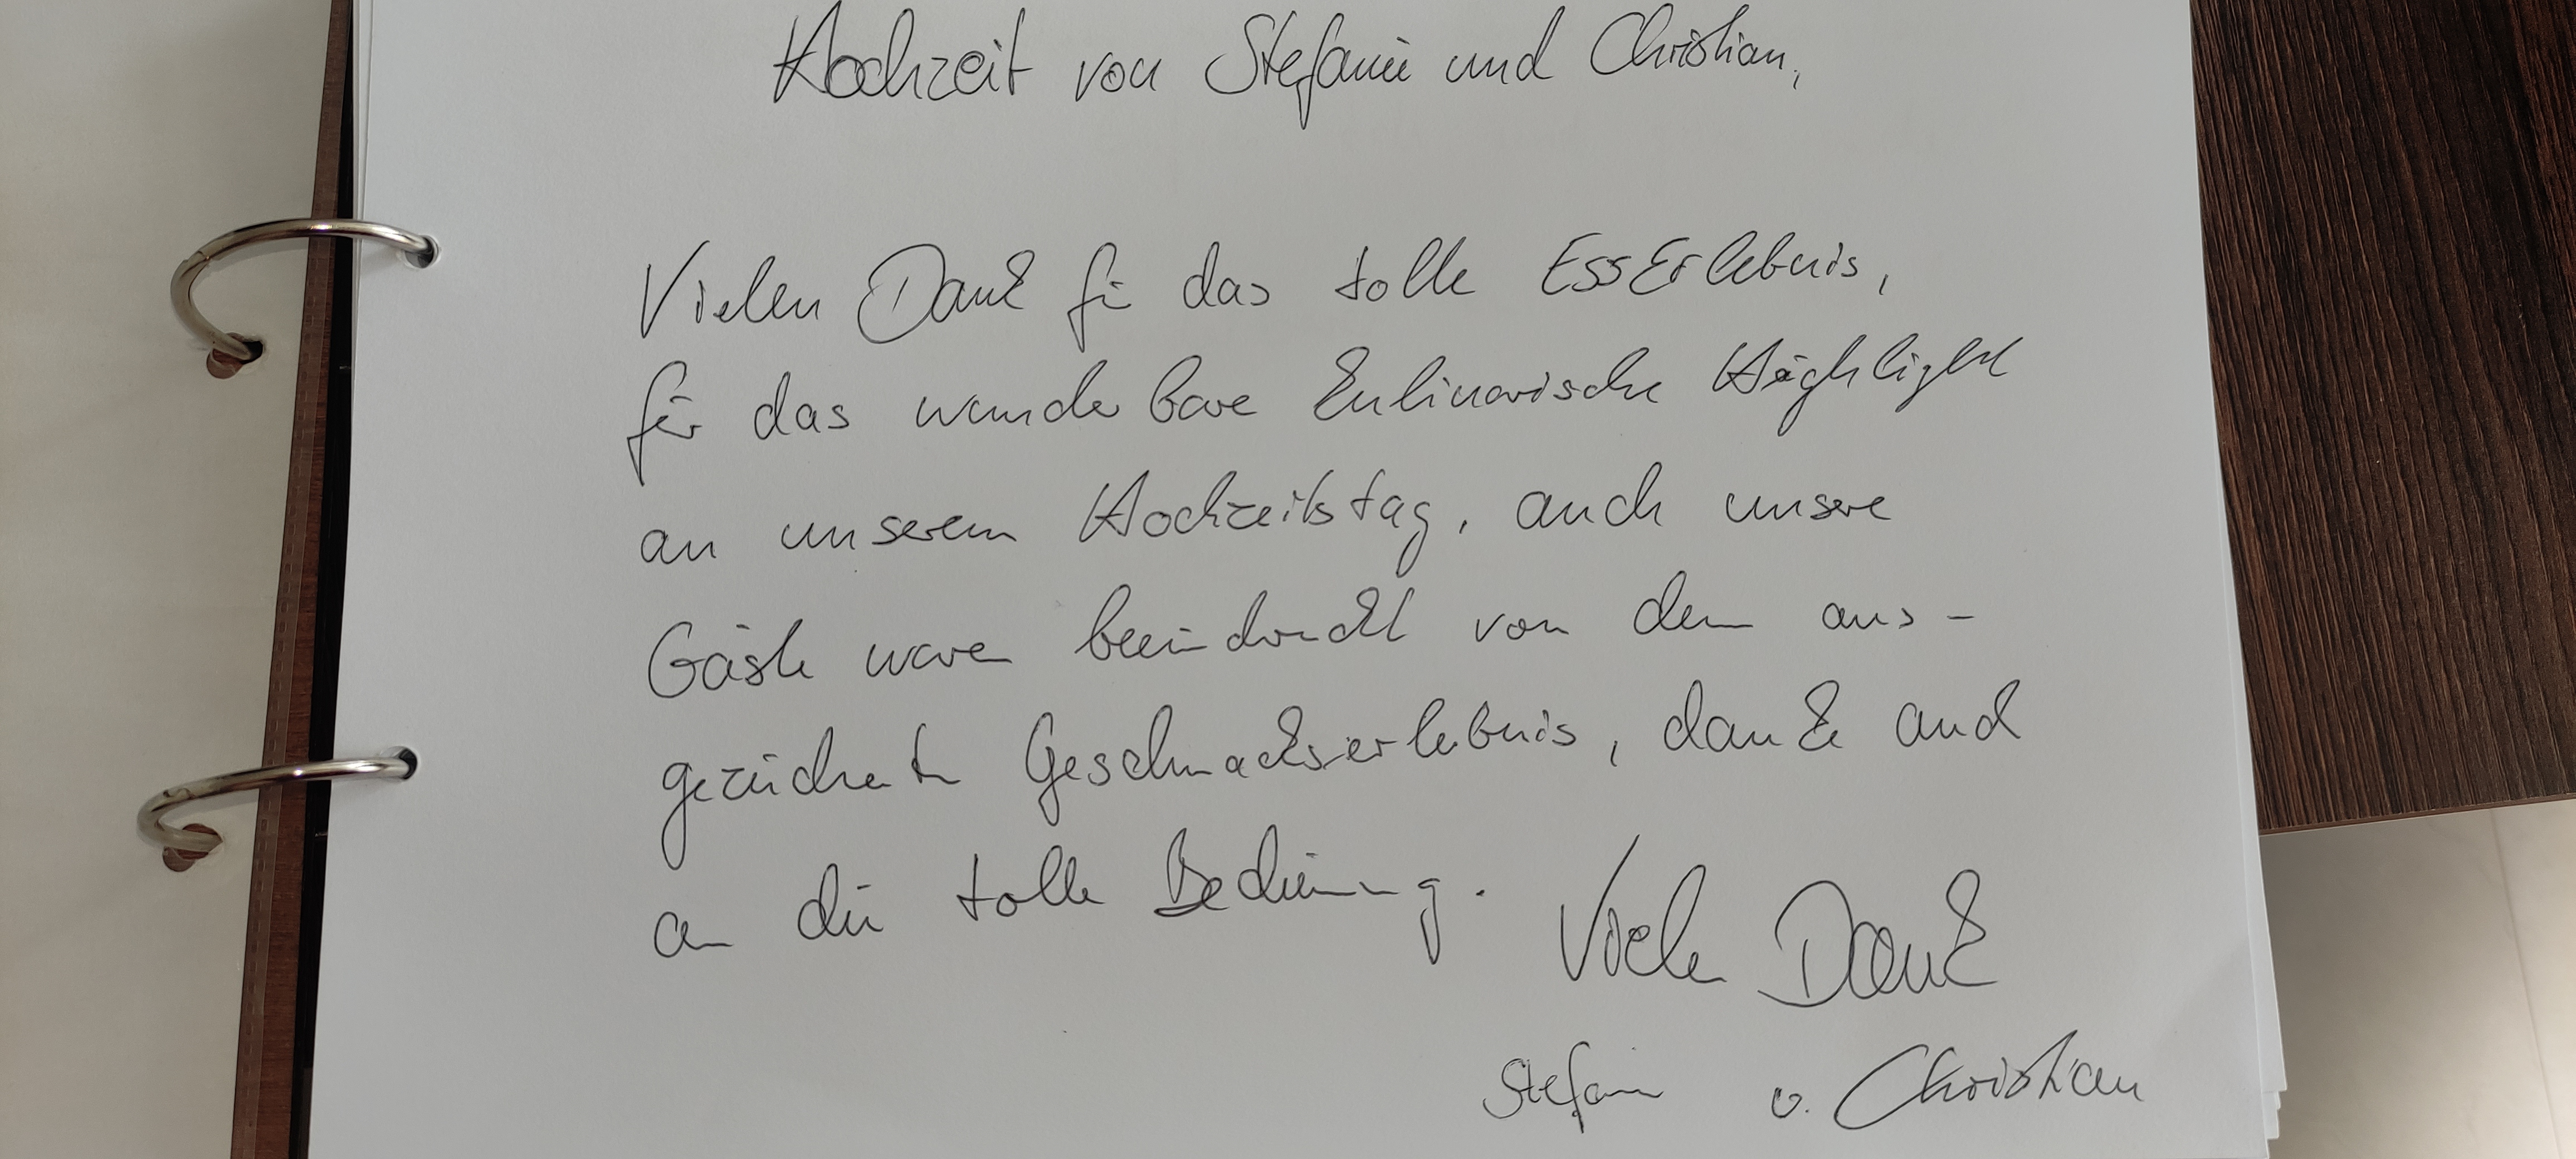 Hochzeit von Stefanie und Christian,
Vielen Dank für das tolle EssErlebnis,
für das wunderbare kulinarische Highlight
an unserem Hochzeitstag, auch unsere
Gäste waren beeindruckt von dem aus-
gezeichneten Geschmackserlebnis, danke auch
an die tolle Bedienung. Vielen Dank
Stefanie u. Christian